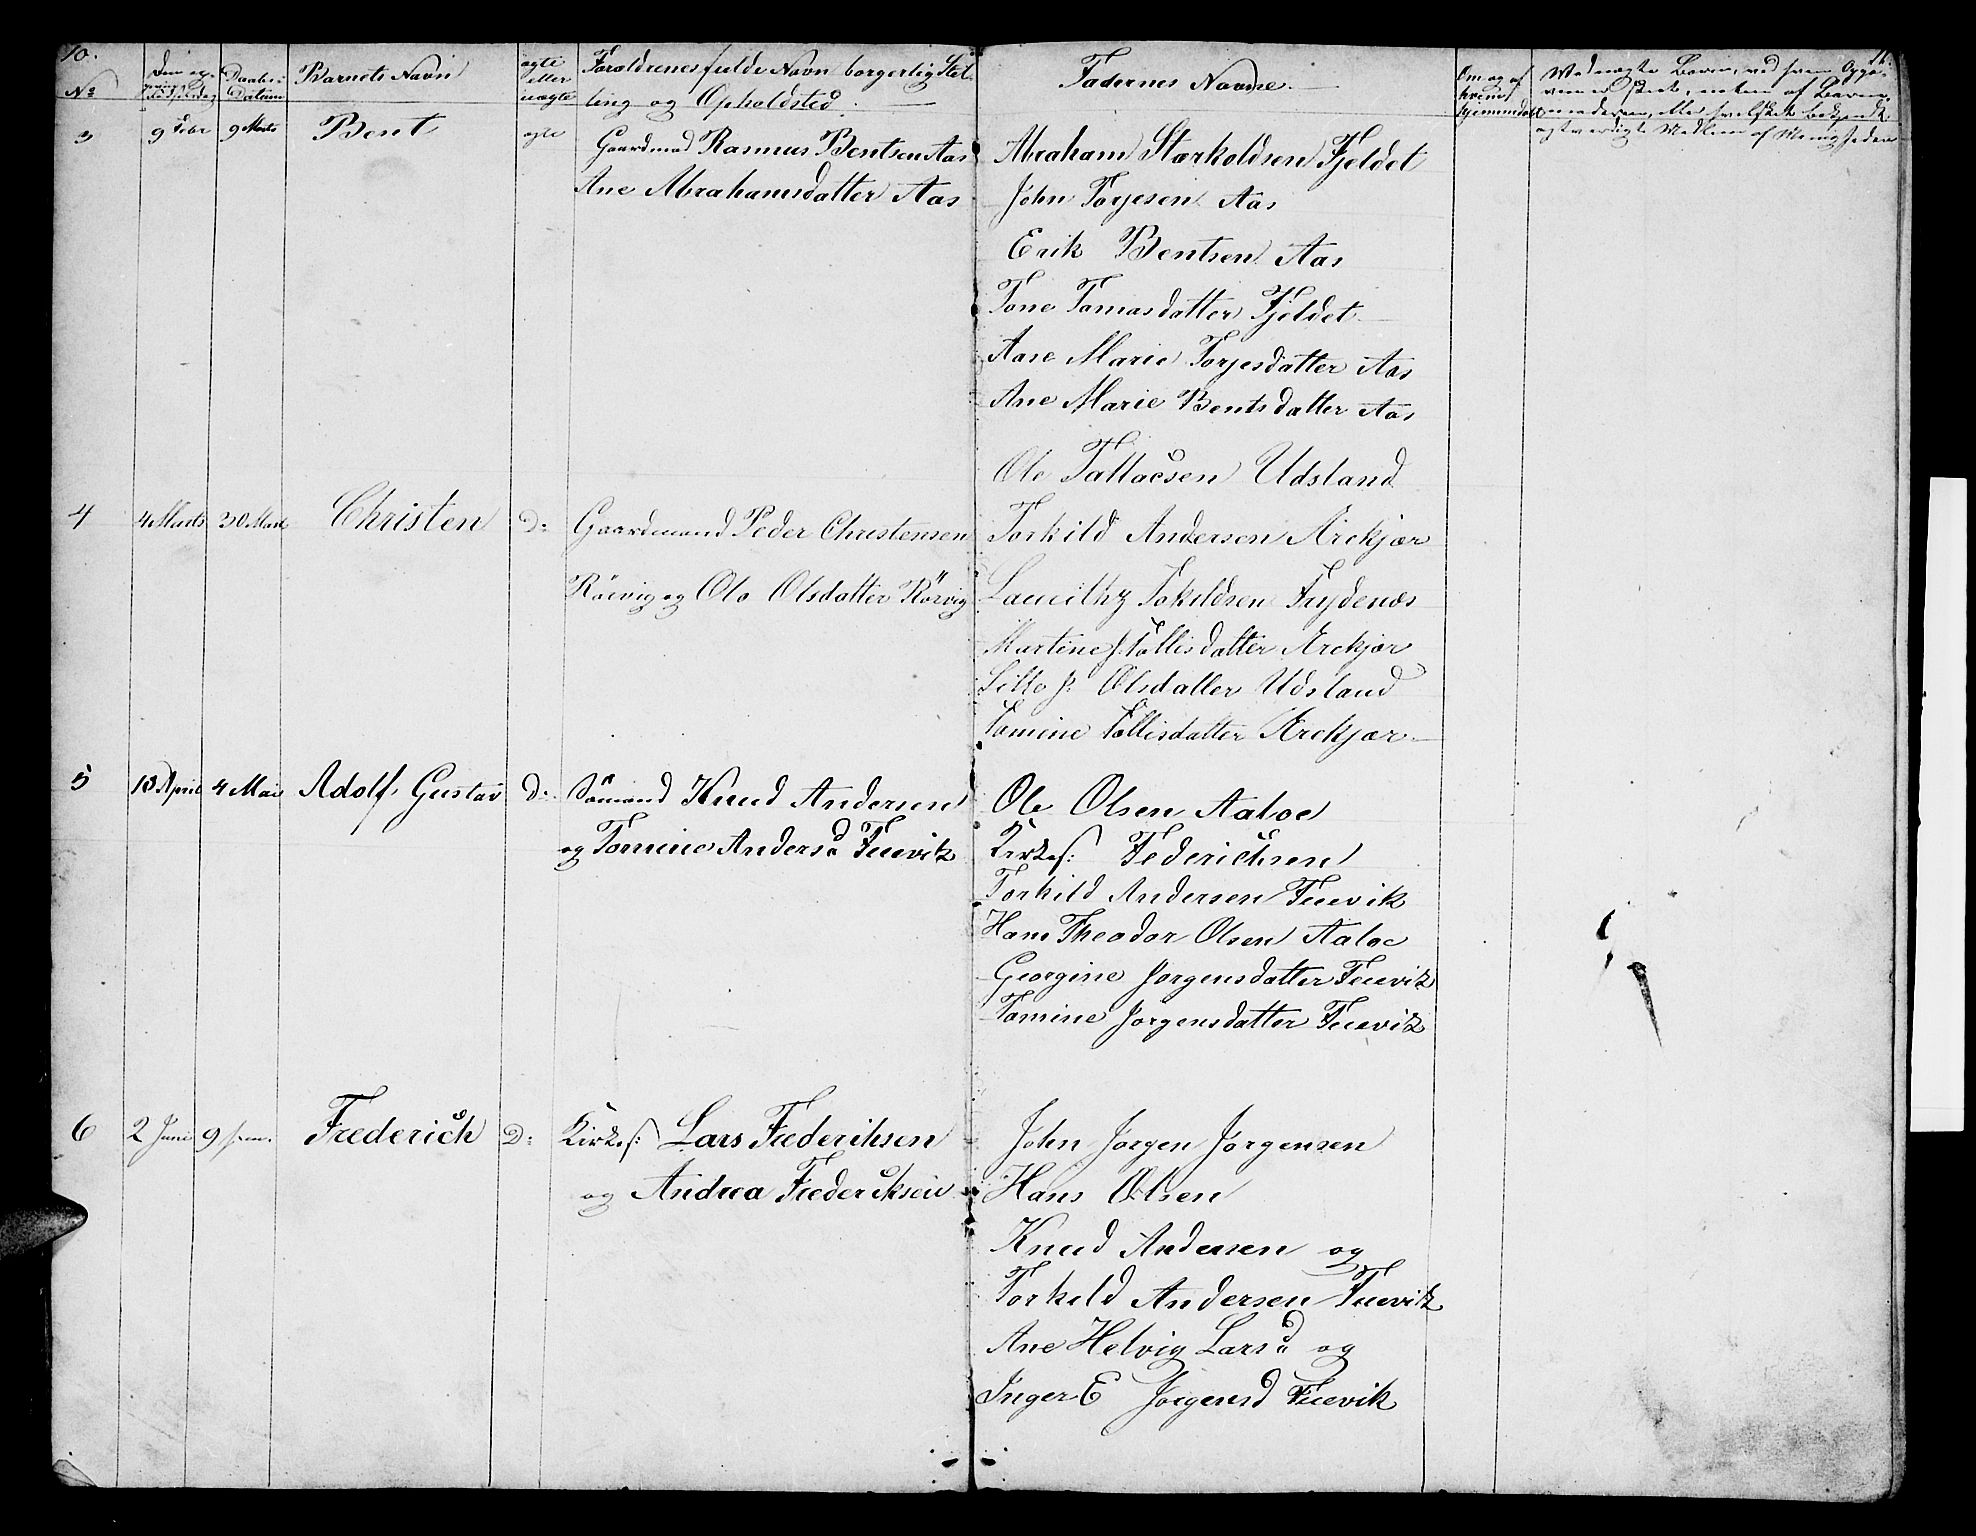 10.
No
Barnets Navn
ægte
eller
uægte
Foraldrenes fulde Navn borgerlig Stil-
ling og Opholdsted.
Fadernes Navne.
Om og af
hvem
hjemmedøbt
3 9 Febr 9 Marts Bent ægte Gaardmad Rasmus Bentsen Aas
Ane Abrahamsdatter Aas
Abraham Stærkoldsen Fjeldet
John Torjesen Aas
Erik Bentsen Aas
Tone Tomasdatter Fjeldet
Aase Marie Torjesdatter Aas
Ane Marie Bentsdatter Aas
Ole Tallacsen Udsland
4 4 Marts 30 Mars Christen D: Gaardmand Peder Christensen
Rörvig og Olo Olsdatter Rörvig
Torkild Andersen Arekjær
Tokildsen Frydenæs
Martine J. Tallisdatter Arekjær
Olsdatter Udsland
Tomine Tallisdatter Arekjær
5 13 April 4 Mai Adolf Gustav D: Sömand Knud Andersen
og Tomine Andersd Fievik
Ole Olsen Aaloe
Kirkes: Federichsen
Torkild Andersen Fievik
Hans Theodor Olsen Aaloe
Georgine Jorgensdatter Fievik
Tomine Jorgensdatter Fievik
6 2 Juni 9 Frederich D: Kirkes: Lars Frederiksen
og Andrea Frederiksen
John Jorgen Jorgensen
Hans Olsen
Knud Andersen og
Torkild Andersen Fievik
Ane Helvig Larsd og
Inger E Jorgensd Fievik